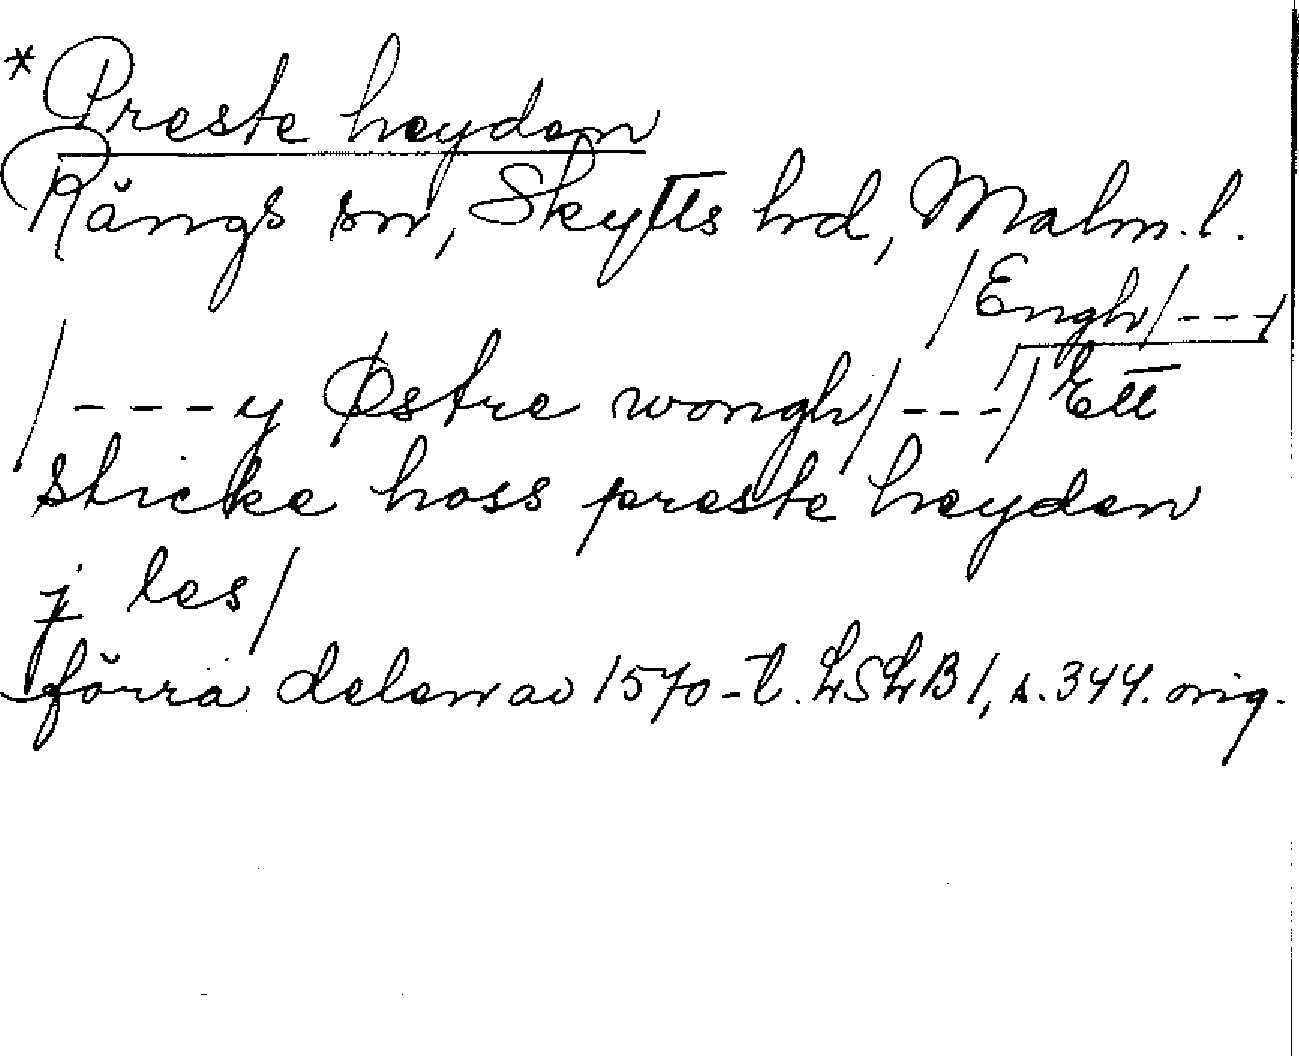 *Preste heyden
Rängs sn, Skytts hd, Malm. l.
/Engh/---/
/---y Østre wongh/---/ Ett
sticke hoss preste heyden
j les/
förra delen av 1570-t. LSLB 1, s. 344. orig.